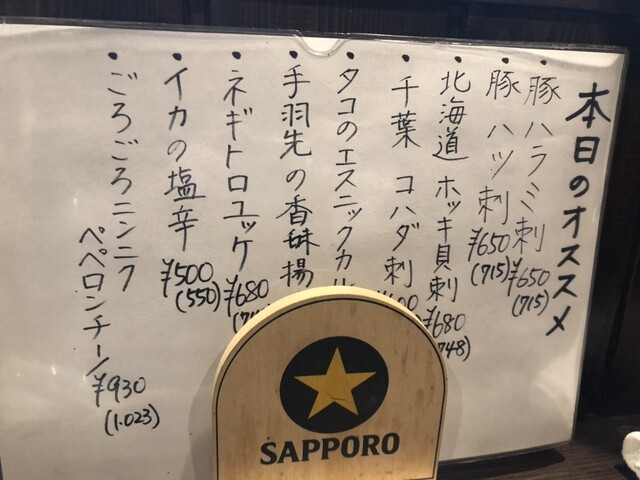 本日のオススメ
・豚ハラミ刺 ¥650
(715)
・豚ハツ刺 ¥650
(715)
・北海道 ホッキ貝刺 ¥680
748)
・千葉 コハダ刺
・タコのエスニックカル
・手羽先の香酥揚
・ネギトロユッケ ¥680
・イカの塩辛 ¥500
(550)
・ごろごろニンニク
ペペロンチーノ ¥930
(1.023)
SAPPORO